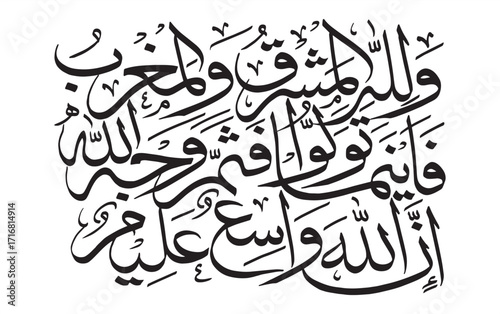 ولله المشرق والمغرب
فاينما تولوا فثم وجه الله
إن الله واسع عليم
Adobe Stock | #1716814914